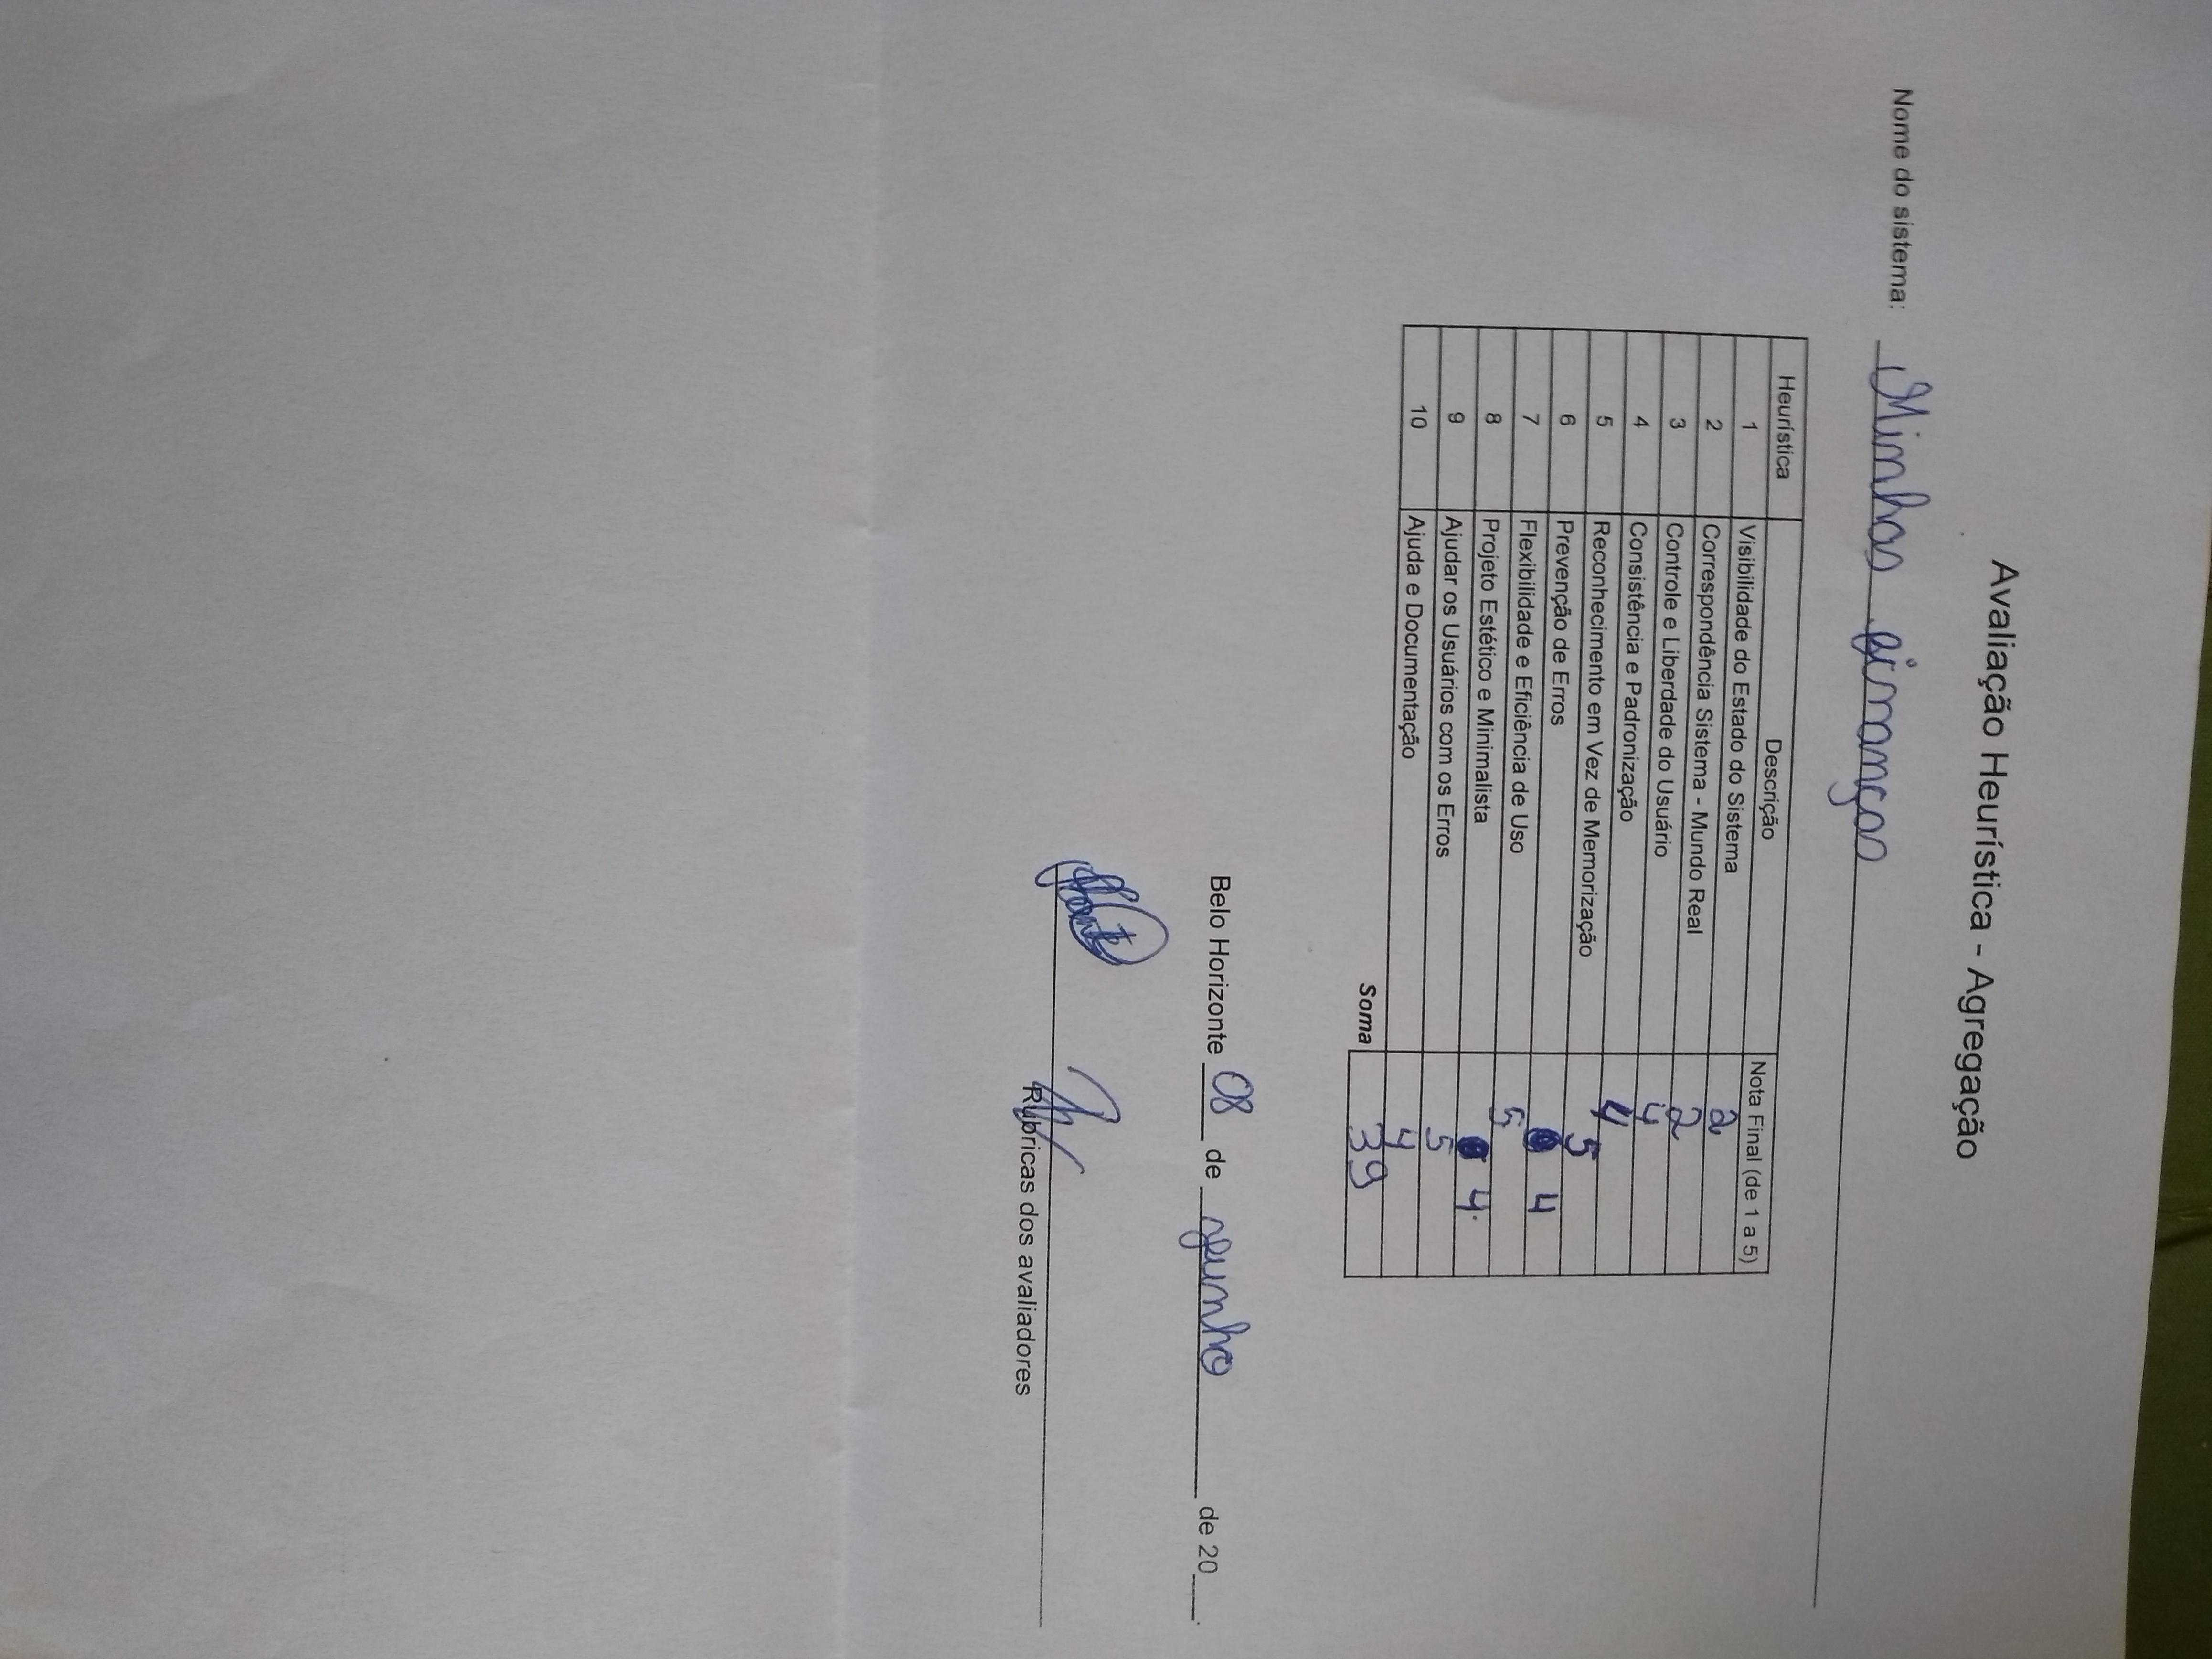 Avaliação Heurística - Agregação
Nome do sistema: Minhas finanças
Heurística Descrição Nota Final (de 1 a 5)
1 Visibilidade do Estado do Sistema 2
2 Correspondência Sistema - Mundo Real 2
3 Controle e Liberdade do Usuário 4
4 Consistência e Padronização 4
5 Reconhecimento em Vez de Memorização 5
6 Prevenção de Erros 4
7 Flexibilidade e Eficiência de Uso 5
8 Projeto Estético e Minimalista 4
9 Ajudar os Usuários com os Erros 5
10 Ajuda e Documentação 4
Soma 39
Belo Horizonte 08 de junho de 20___.
Rubricas dos avaliadores